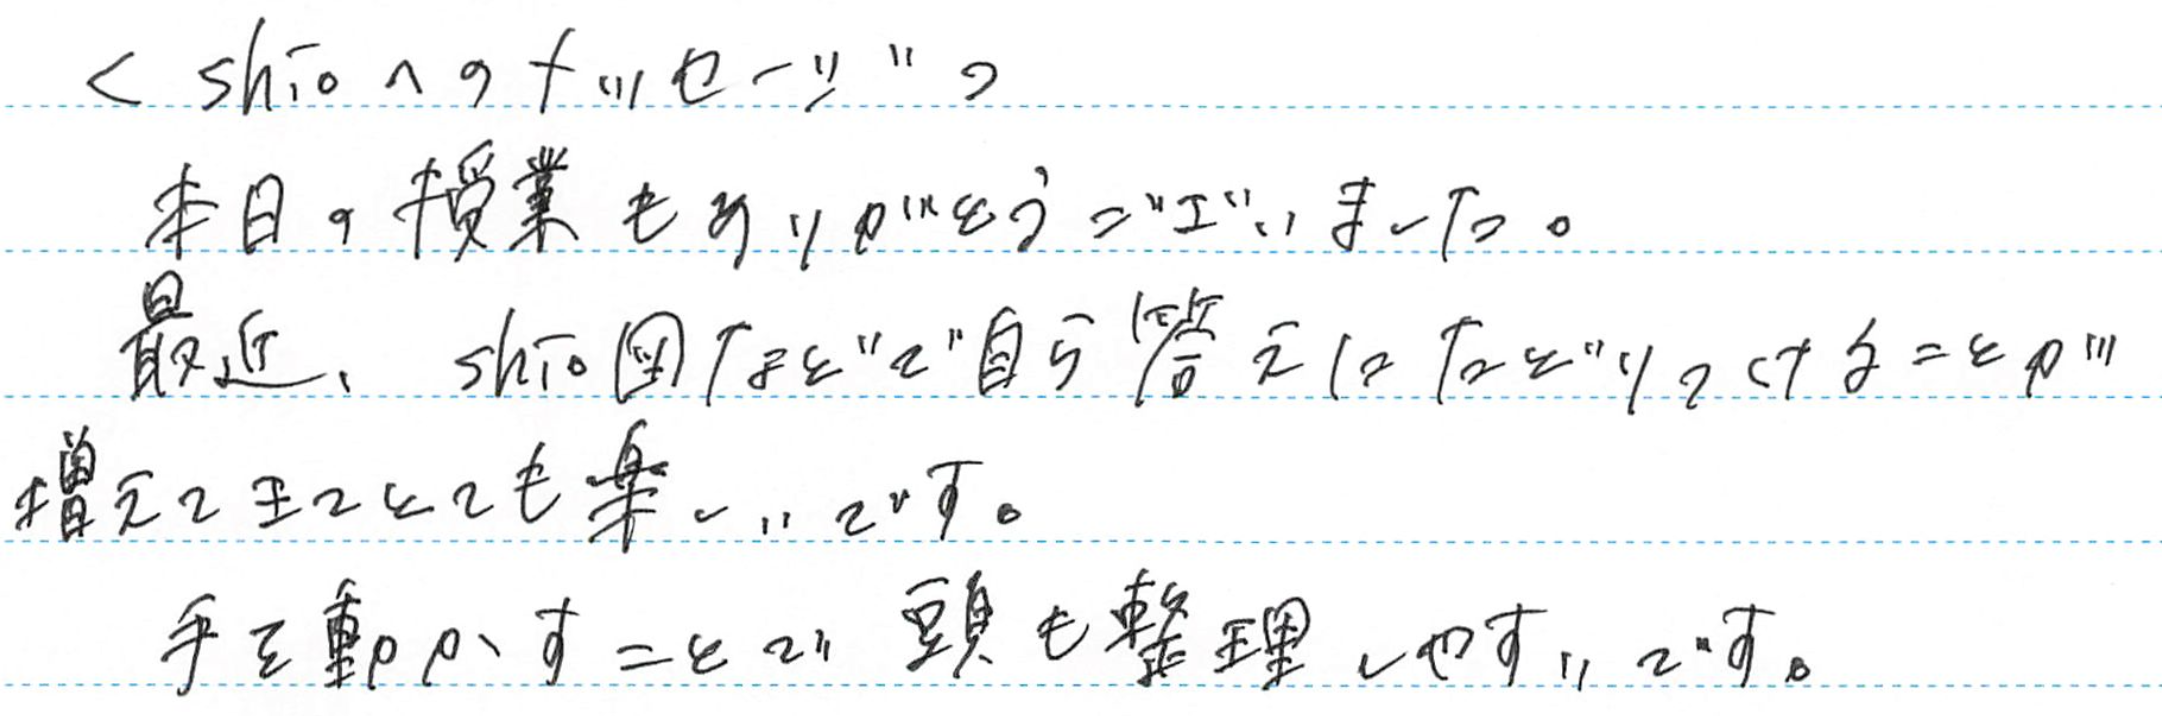 <shioへのメッセージ>
本日の授業もありがとうございました。
最近、shio図などで自ら答えにたどりつけることが
増えてきてとても楽しいです。
手を動かすことで頭も整理しやすいです。